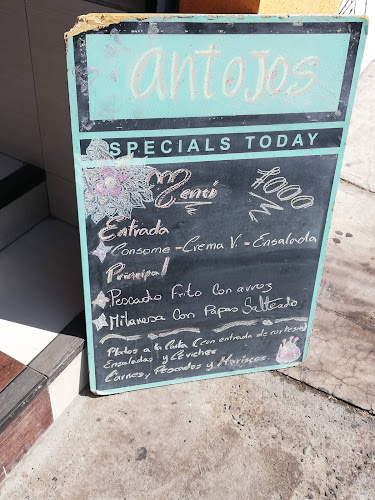 antojos
SPECIALS TODAY
Menú 7000
Entrada
Consome - Crema V. - Ensalada
Principal
Pescado Frito Con arroz
Milanesa Con Papas Salteado
Platos a la Carta (con entrada de cortesia)
Ensaladas y Ceviches
Carnes, Pescados y Mariscos